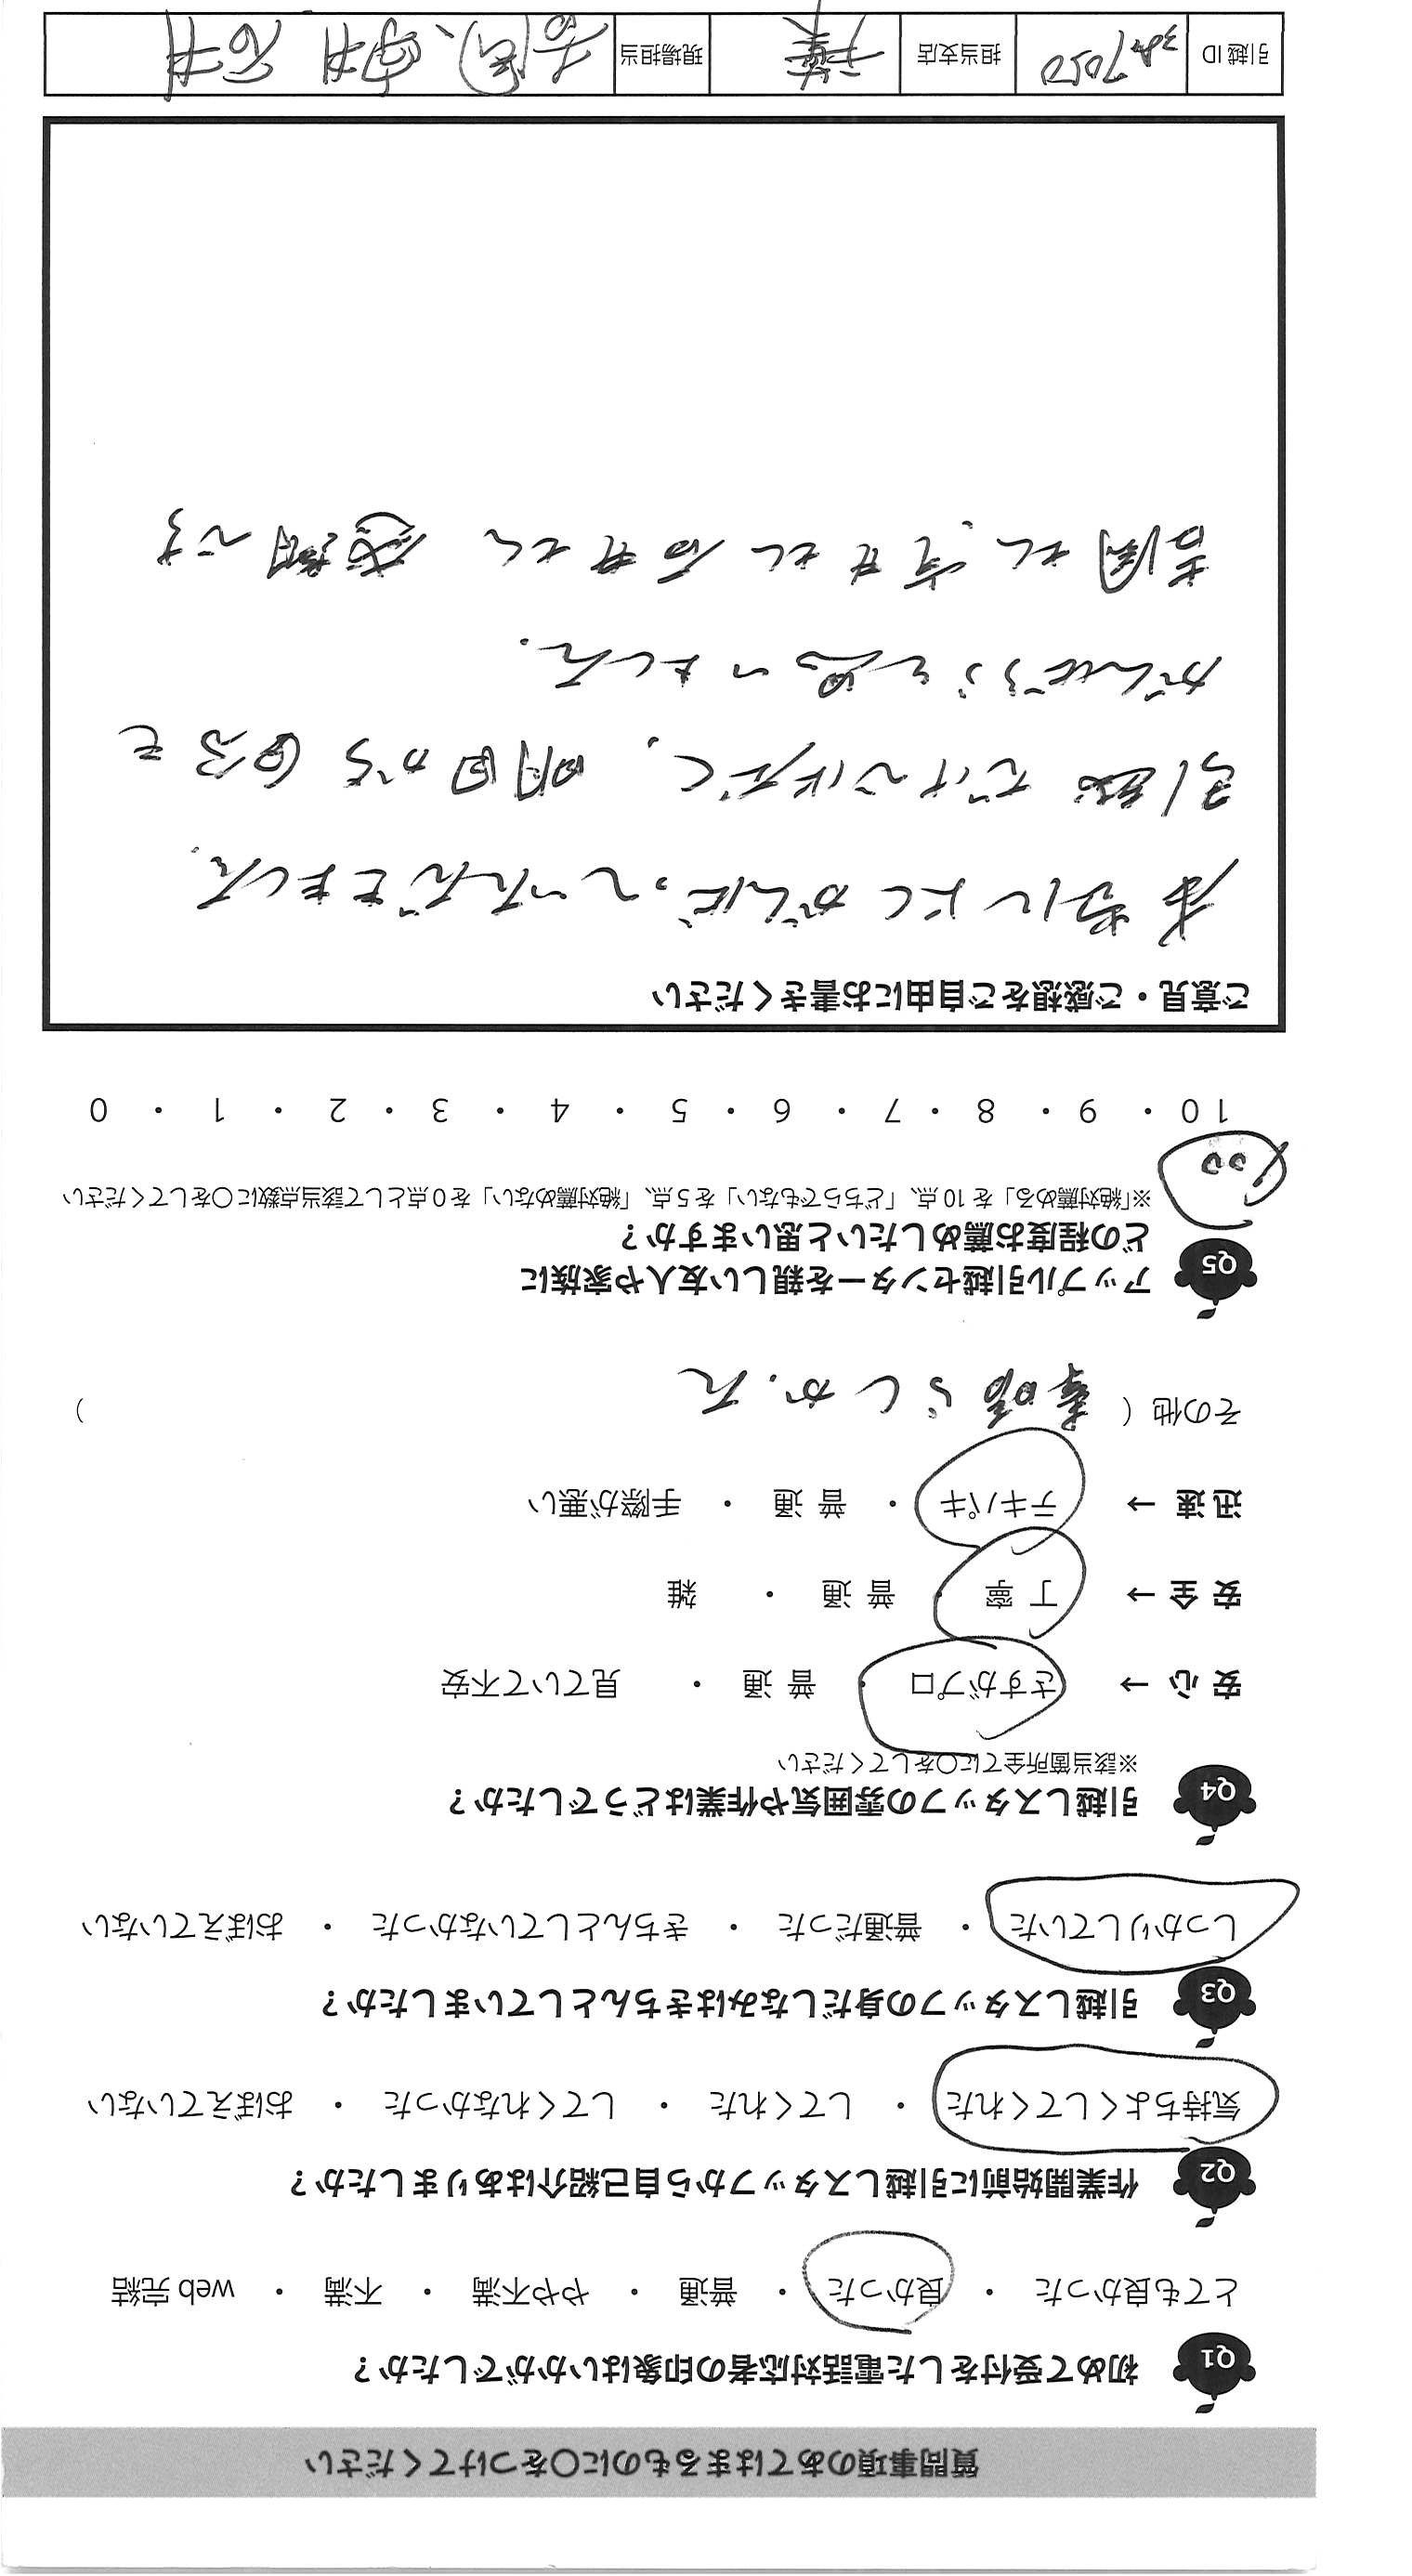 質問事項のあてはまるものに○をつけてください
Q1 初めて受付をした電話対応者の印象はいかがでしたか？
とても良かった ・ 良かった ・ 普通 ・ やや不満 ・ 不満 ・ web 完結
Q2 作業開始前に引越しスタッフから自己紹介はありましたか？
気持ちよくしてくれた ・ してくれた ・ してくれなかった ・ おぼえていない
Q3 引越しスタッフの身だしなみはきちんとしていましたか？
しっかりしていた ・ 普通だった ・ きちんとしていなかった ・ おぼえていない
Q4 引越しスタッフの雰囲気や作業はどうでしたか？
※該当箇所全てに○をしてください
安心 → さすがプロ ・ 普通 ・ 見ていて不安
安全 → 丁寧 ・ 普通 ・ 雑
迅速 → テキパキ ・ 普通 ・ 手際が悪い
その他 ( 素晴らしかった )
Q5 アップル引越センターを親しい友人や家族に
どの程度お薦めしたいと思いますか？
※「絶対薦める」を 10 点、「どちらでもない」を 5 点、「絶対薦めない」を 0 点として該当点数に○をしてください
100
10 ・ 9 ・ 8 ・ 7 ・ 6 ・ 5 ・ 4 ・ 3 ・ 2 ・ 1 ・ 0
ご意見・ご感想をご自由にお書きください
本当によくがんばっていただきました。
引越だけではなく、明日から自分も
がんばろうと思いました.
吉岡さん、さん 石井さん 感謝です
引越 ID 7050 担当支店 千葉 現場担当 吉岡、石井